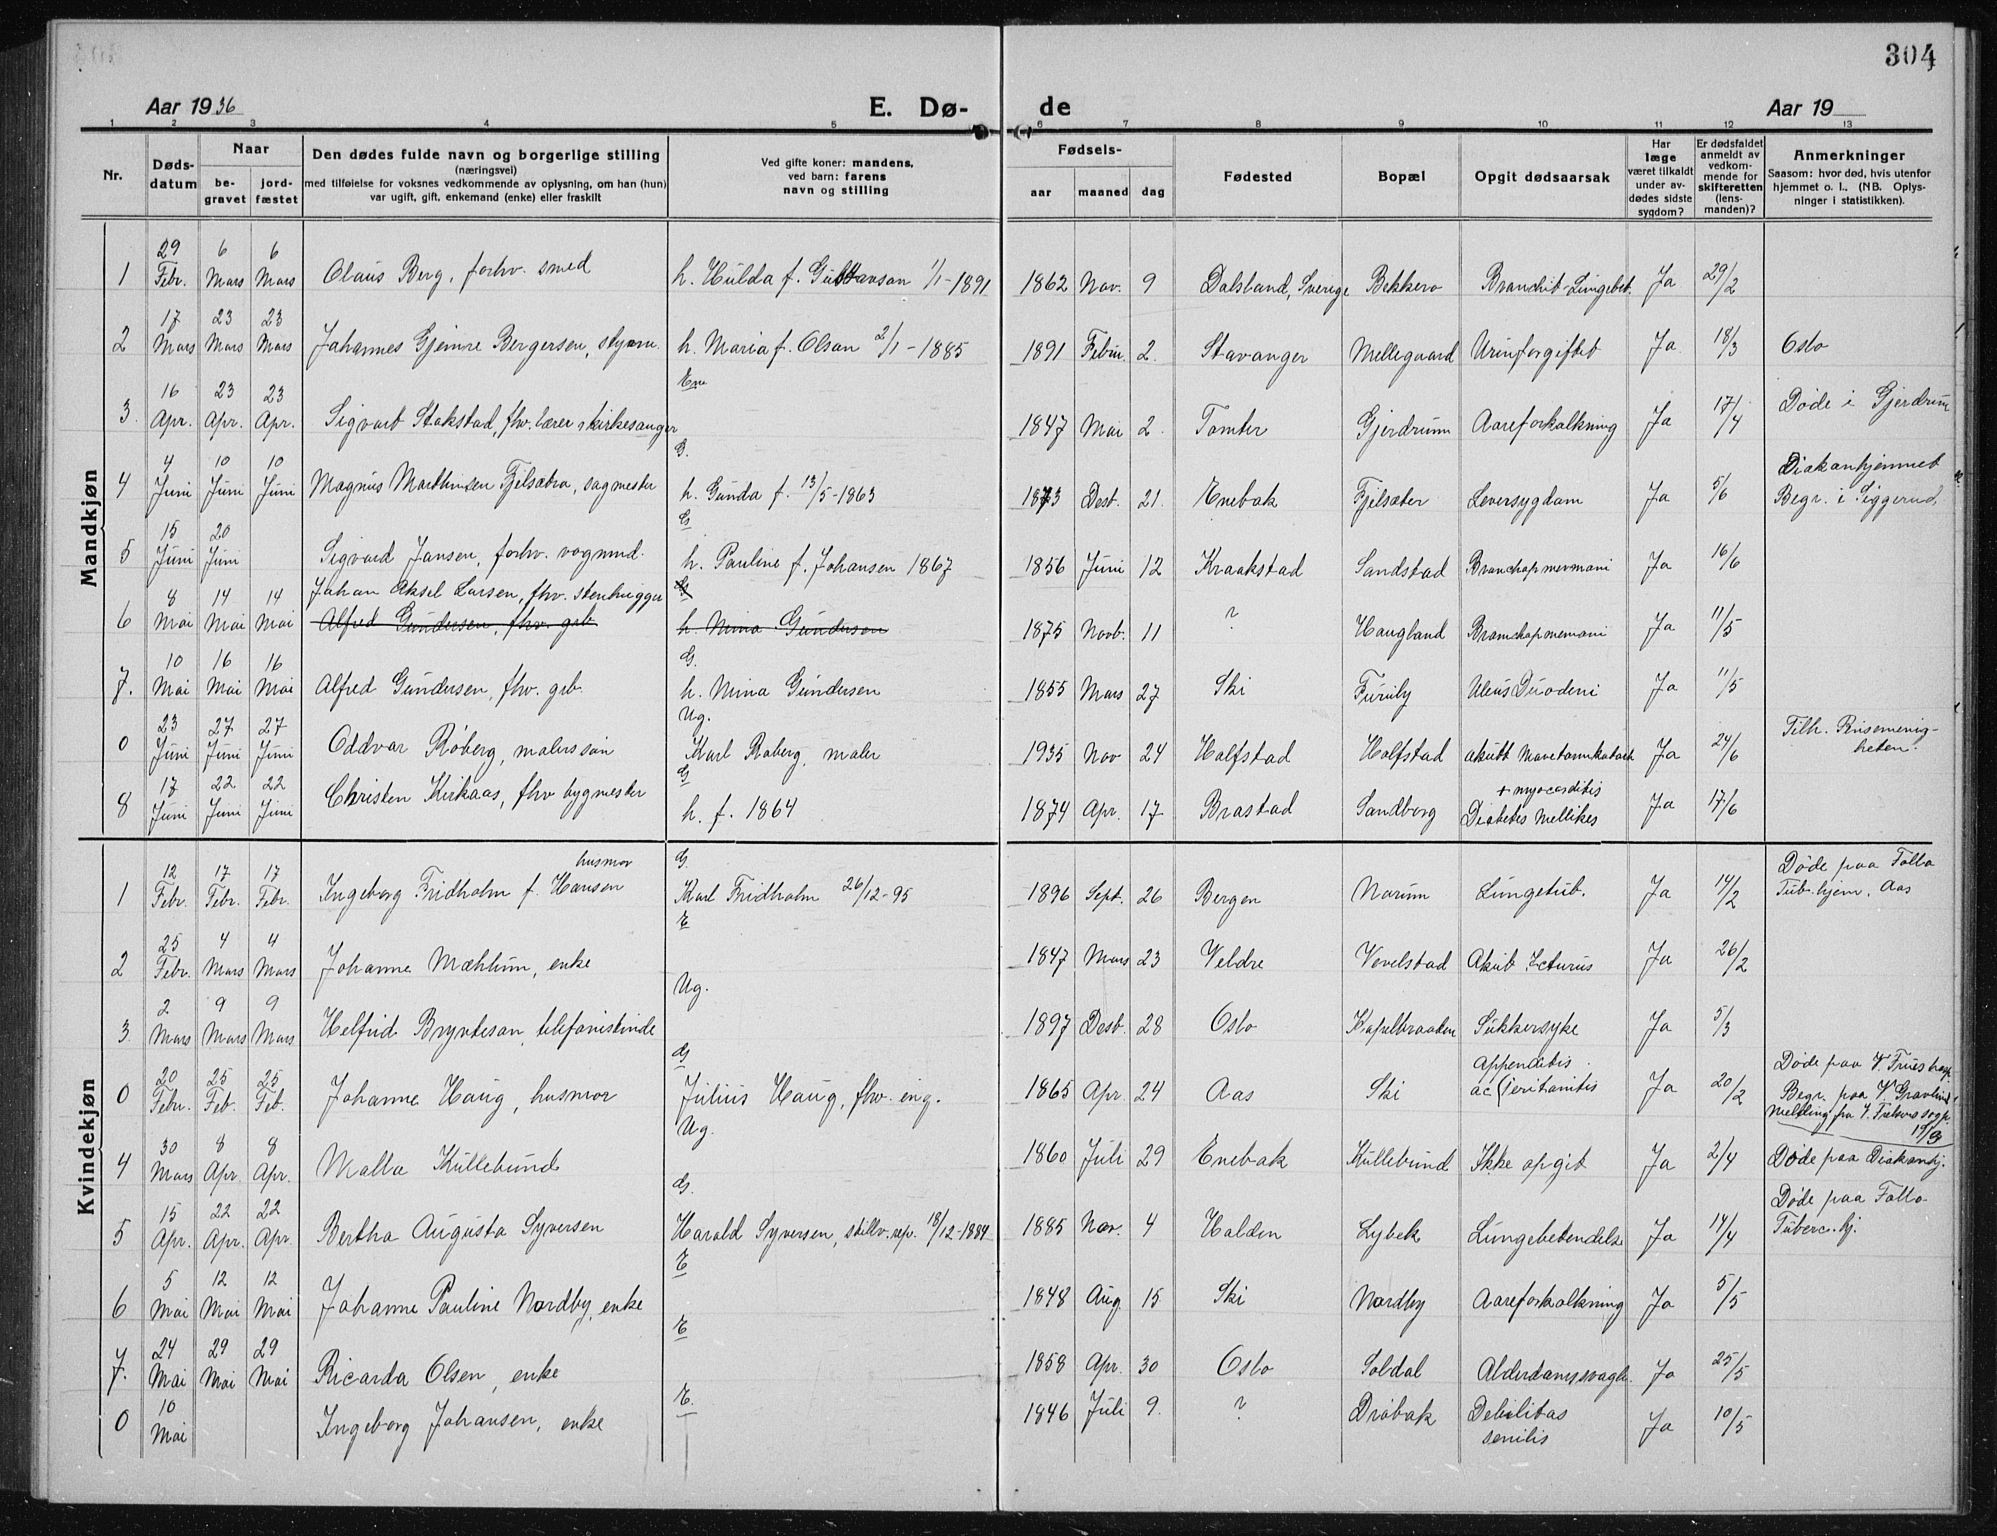 304
Aar 1936 E. Dø- de Aar 19
1 2 3 4 5 6 7 8 9 10 11 12 13
Nr. Døds-datum Naar be-gravet jord-fæstet Den dødes fulde navn og borgerlige stilling (næringsvei) med tilføielse for voksnes vedkommende av oplysning, om han (hun) var ugift, gift, enkemand (enke) eller fraskilt Ved gifte koner: mandens, ved barn: farens navn og stilling Fødsels- aar maaned dag Fødested Bopæl Opgit dødsaarsak Har læge været tilkaldt under av-dødes sidste sygdom? Er dødsfaldet anmeldt av vedkom-mende for skifteretten (lens-manden)? Anmerkninger Saasom: hvor død, hvis utenfor hjemmet o. l., (NB. Oplys-ninger i statistikken).
Mandkjøn
1 29 Febr. 6 Mars 6 Mars Olaus Berg, forhv. smed h. Hulda f. Gustavson 1/1-1891 1862 Nov. 9 Dalsland, Sverige Bekkero Bronchit-Lungebet. Ja 29/2
2 17 Mars 23 Mars 23 Mars Johannes Gjemre Bergersen, styrm. h. Maria f. Olsen 2/1-1885 1891 Febru. 2. Stavanger Mellegaard Urinforgiftet Ja 18/3 Oslo
3 16 Apr. 23 Apr. 23 Apr. Sigvart Stakstad, fhv. lærer, kirkesanger Em 1847 Mai 2. Tomter Gjerdrum Aareforkalkning Ja 17/4 Døde i Gjerdrum
4 4 Juni 10 Juni 10 Juni Magnus Marthinsen Fjelsæter, sagmester G. h. Gunda f. 13/5-1863 1873 Desb. 21. Enebak Fjelsæter Leversygdom Ja 5/6 Diakonhjemmet Begr. i Siggerud.
5 15 Juni 20 Juni Sigvard Jansen, forhv. vognmd. G h. Pauline f. Johansen 1867 1856 Juni 12 Kraakstad Sandstad Bronchopnevmoni Ja 16/6
6 8 Mai 14 Mai 14 Mai Johan Aksel Larsen, fhv. stenhugger Alfred Gundersen, fhv. grb. h. Nina Gundersen 1875 Novb. 11 ? Haugland Bronchopnevmoni Ja 11/5
7. 10 Mai 16 Mai 16 Mai Alfred Gundersen, fhv. grb. G. h. Nina Gundersen 1855 Mars 27 Ski Furuly Ulcus Duodeni Ja 11/5
0 23 Juni 27 Juni 27 Juni Oddvar Røberg, malerssøn Ug. Karl Røberg, maler 1935 Nov 24 Holfstad Holfstad akutt Mavetarmkatarh Ja 24/6 Tilh. Frimenig-heten.
8 17 Juni 22 Juni 22 Juni Christen Kirkaas, fhv bygmester G h. f. 1864 1874 Apr. 17 Brastad Sandborg + myocarditis Diabetes Mellites Ja 17/6
Kvindekjøn
1 12 Febr. 17 Febr. 17 Febr. Ingeborg Fridholm f. Hansen husmor G. Karl Fridholm 26/12-95 1896 Sept. 26 Bergen Norum Lungetub. Ja 14/2 Døde paa Follo Tub. hjem, Aas
2 25 Febr. 4 Mars 4 Mars Johanne Mæhlum, enke E 1847 Mars 23 Veldre Vevelstad Akut Icturus Ja 26/2
3 2 Mars 9 Mars 9 Mars Helfrid Bryntesen, telefonistinde Ug. 1897 Desb. 28 Oslo Kapelbraaten Sukkersyke Ja 5/3
0 20 Febr. 25 Feb. 25 Feb. Johanne Haug, husmor G Julius Haug, fhv. eng. 1865 Apr. 24 Aas Ski appenditis. ac peritonitis Ja 20/2 Døde paa V. Frues hosp. Begr. paa V. Gravlund Melding fra V. Frelsers sogn. 19/3
4 30 Mars 8 Apr. 8 Apr. Malla Kullebund Ug. 1860 Juli 29 Enebak Kullebund Ikke opgit Ja 2/4 Døde paa Diakonhj.
5 15 Apr. 22 Apr. 22 Apr. Bertha Augusta Syversen G. Harald Syversen, stillv.rep. 18/12-1884 1885 Nov. 4 Halden Lybek Lungebetendelse Ja 17/4 Døde paa Follo Tuberc. hj.
6 5 Mai 12 Mai 12 Mai Johanne Pauline Nordby, enke E 1848 Aug. 15 Ski Nordby Aareforkalkning Ja 5/5
7. 24 Mai 29 Mai 29 Mai Ricarda Olsen, enke E 1858 Apr. 30 Oslo Soldal Alderdomssvagh. Ja 25/5
0 10 Mai Ingeborg Johansen, enke E. 1846 Juli 9. ? Drøbak Debilitas senilis Ja 10/5